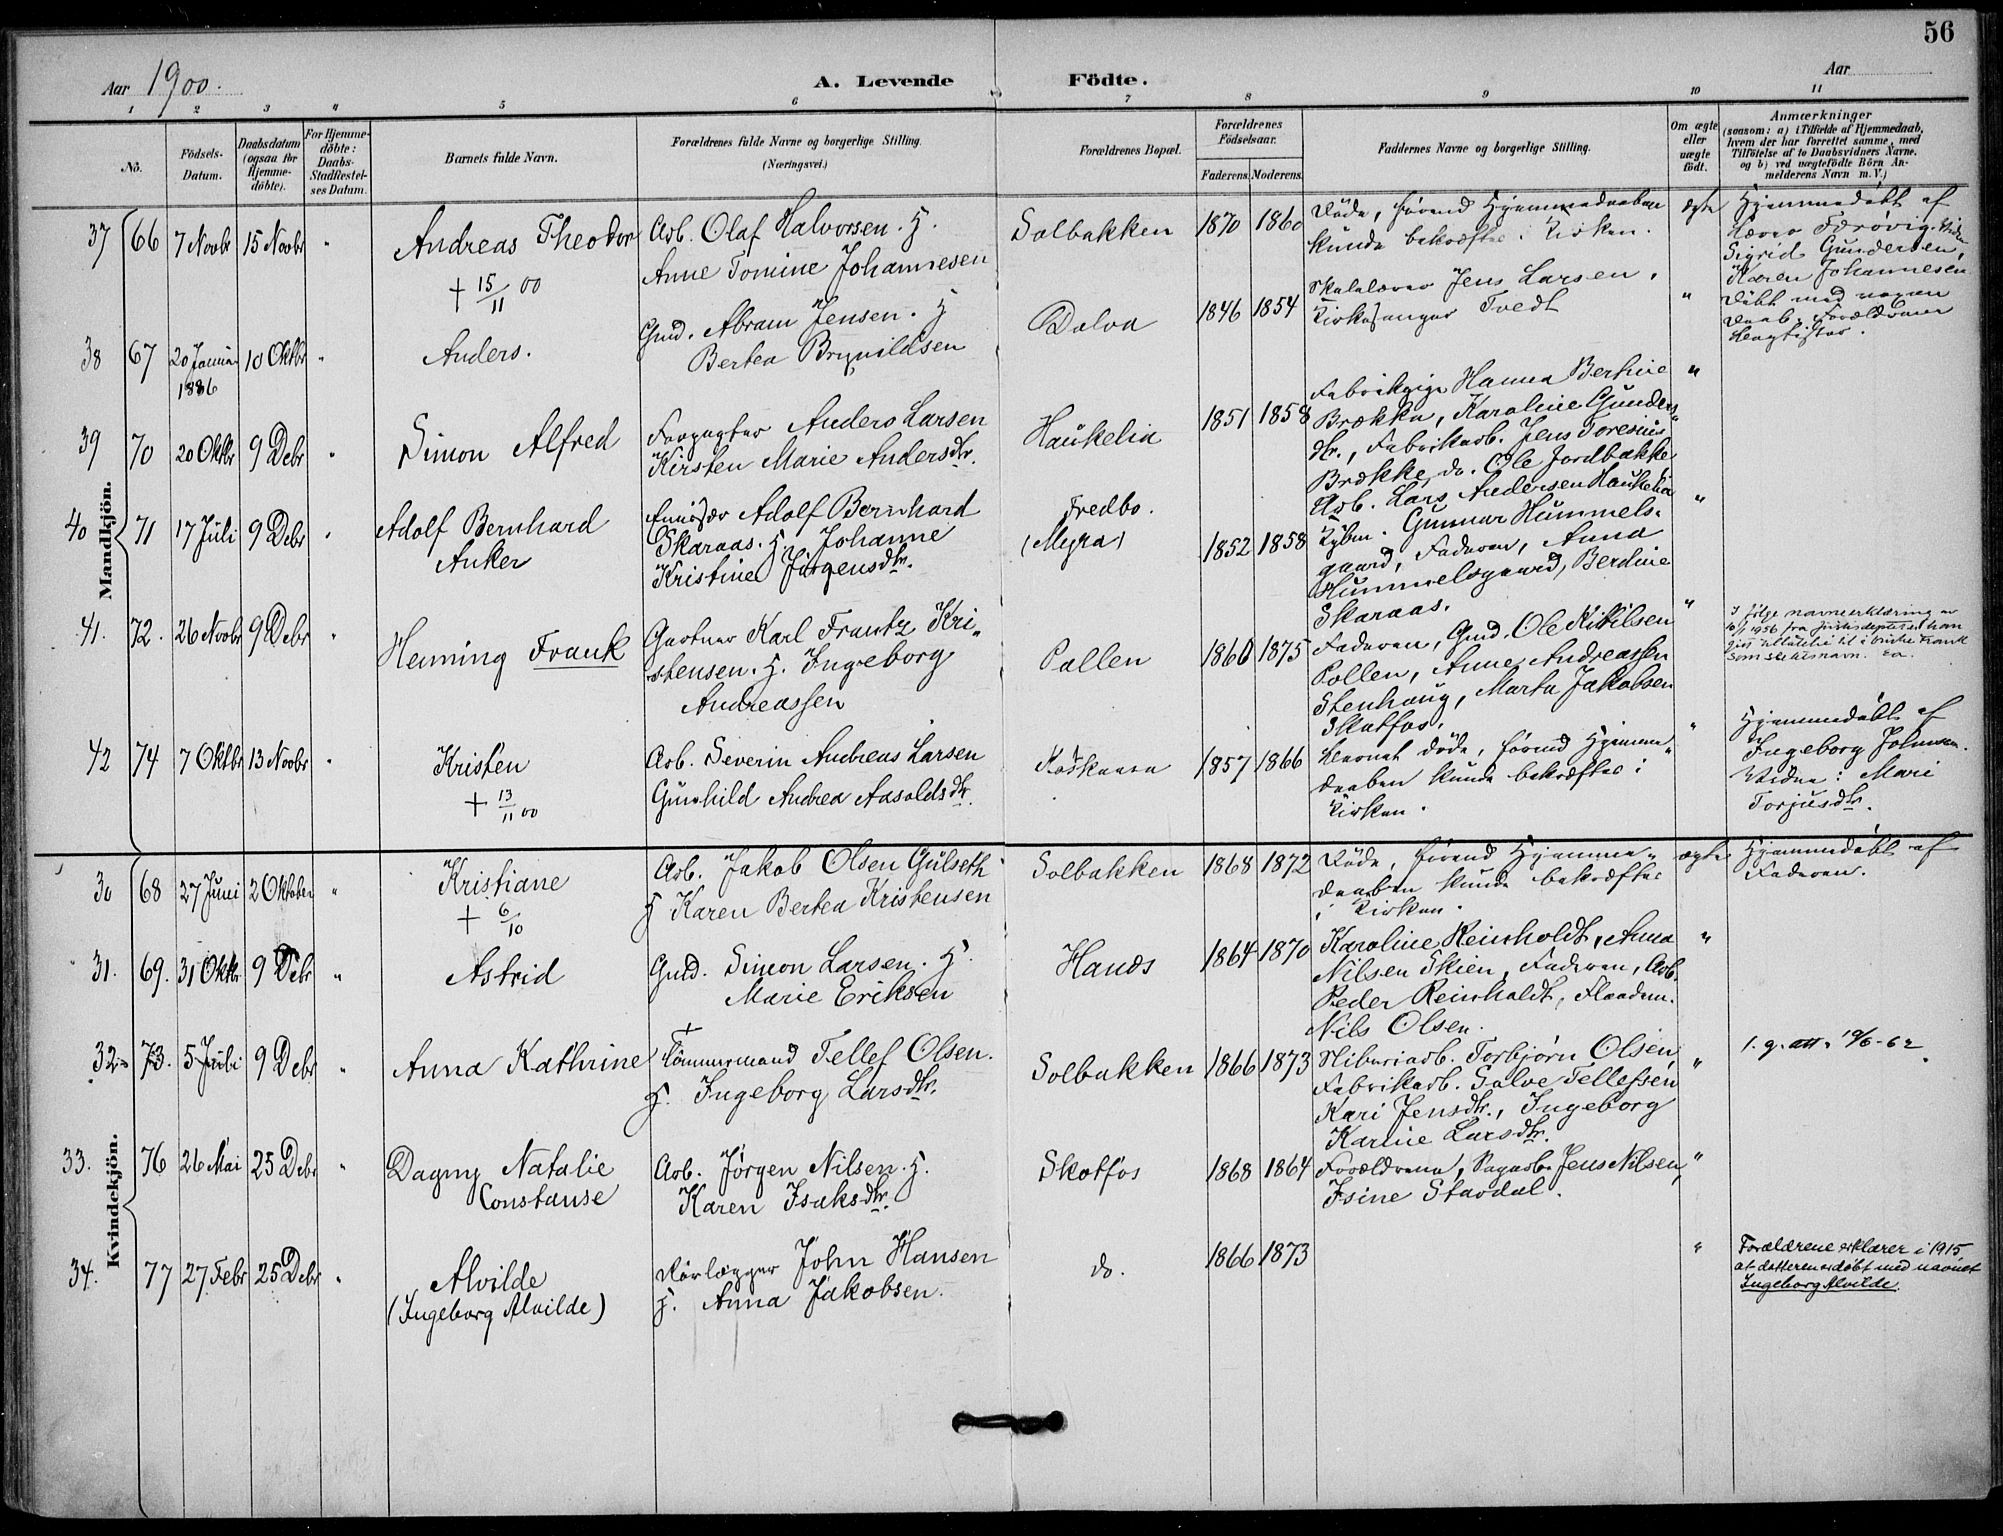 56
Aar 1900. A. Levende Födte. Aar
1 2 3 4 5 6 7 8 9 10 11
No.
Födsels-
Datum.
Daabsdatum
(ogsaa for
Hjemme-
döbte).
For Hjemme-
döbte:
Daabs-
Stadfæstel-
ses Datum.
Barnets fulde Navn.
Forældrenes fulde Navne og borgerlige Stilling.
(Næringsvei.)
Forældrenes Bopæl.
Forældrenes
Födselsaar.
Faderens. Moderens.
Faddernes Navne og borgerlige Stilling.
Om ægte
eller
uægte
födt.
Anmærkninger
(saasom: a) i Tilfælde af Hjemmedaab,
hvem der har forrettet samme, med
Tilföielse af to Daabsvidners Navne.
og b) ved uægtefödte Börn An-
melderens Navn m. V.)
Mandkjön.
37 66 7 Novbr 15 Novbr "
Andreas Theodor
+ 15/11 00
Arb. Olaf Halvorsen. H.
Anne Tomine Johannesen
Solbakken 1870 1860
Döde, förend Hjemmedaaben
kunde bekræftes i Kirken.
ægte
Hjemmedöbt af
Lærer Færövig. Vidn
Sigrid Gundersen,
Karen Johannesen
38 67 20 Januar 1886 10 Oktbr "
Anders.
Gmd. Abram Jensen. H
Bertea Brynildsen
Dalva 1846 1854
Skolelærer Jens Larsen,
Kirkesanger Tvedt
"
Döbt med voxen
Daab. Forældrene
Baptister.
39 70 20 Oktbr 9 Debr "
Simon Alfred
Forpagter Anders Larsen
Kirsten Marie Andersdtr.
Haukelia 1851 1858
Fabrikpige Hanna Bertine
Brække, Karoline Gunders
dtr., Fabrikarb. Jens Toresius
Brække, do. Ole Jordbakke
Arb. Lars Andersen Haukelia
"
40 71 17 Juli 9 Debr "
Adolf Bernhard
Anker
Emissær Adolf Bernhard
Skaraas. H. Johanne
Kristine Jörgensdtr.
Fredbo.
(Myra) 1852 1858
Kjbm. Gunnar Hummels-
gaard, Faderen, Anna
Hummelsgaard, Berdine
Skaraas.
"
41. 72. 26 Novbr 9 Debr "
Henning Frank
Gartner Karl Frantz Kri-
stensen. H. Ingeborg
Andreassen
Pollen 1860 1875
Faderen, Gmd. Ole Kittilsen
Pollen, Anne Andreassen
Stenhaug, Marta Jakobsen
Skotfos.
"
I følge navneerklæring av
10/1 1956 fra justisdeptet er han
gitt tillatelse til å bruke Frank
som slektsnavn. Ea.
42 74 7 Oktbr 13 Novbr "
Kristen
+ 13/11 00
Arb. Severin Andreas Larsen
Gunhild Andrea Aasoldsdtr.
1857 1866
Barnet döde, förend Hjemme-
daaben kunde bekræftes i
Kirken.
"
Hjemmedöbt af
Ingeborg Johnsen.
Vidne: Mari
Torjusdtr.
Kvindekjön.
30 68 27 Juni 2 Oktober "
Kristiane
+ 6/10
Arb. Jakob Olsen Gulseth
H Karen Bertea Kristensen
Solbakken 1868 1872
Döde, förend Hjemme-
daaben kunde bekræftes
i Kirken.
ægte
Hjemmedöbt af
Faderen.
31. 69. 31 Oktbr 9 Debr "
Astrid
Gmd. Simon Larsen. H.
Marie Eriksen
Hanas 1864 1870
Karoline Reinholdt, Anna
Nilsen Skien, Faderen, Arb.
Peder Reinholdt, Flaadem.
Nils Olsen.
"
32 73. 5 Juli 9 Debr "
Anna Kathrine
Tömmermand Tellef Olsen.
H. Ingeborg Larsdtr.
Solbakken 1866 1873
Sliberiarb. Torbjörn Olsen,
Fabrikarb. Salve Tellefsen
Kari Jensdtr., Ingeborg
Karine Larsdtr.
"
1. g. att. 19/6-62
33. 76 26 Mai 25 Debr "
Dagny Natalie
Constanse
Arb. Jörgen Nilsen. H.
Karen Isaksdtr.
Skotfos 1868 1864
Forældrene, Sagarb. Jens Nilsen,
Isine Stavdal.
"
34. 77 27 Febr 25 Debr "
Alvilde
(Ingeborg Alvilde)
Rörlægger John Hansen
H. Anna Jakobsen.
do. 1866 1873
"
Forældrene erklærer i 1915
at datteren er döbt med navnet
Ingeborg Alvilde.